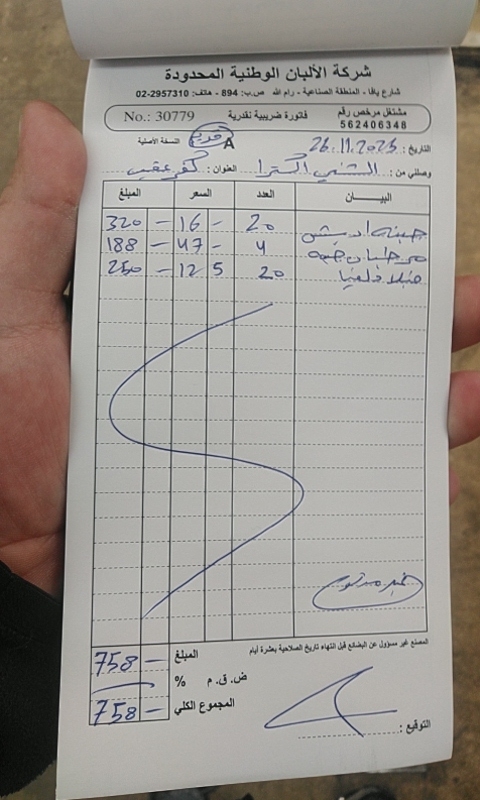 شركة الألبان الوطنية المحدودة
شارع يافا - المنطقة الصناعية - رام الله ص.ب: 894 - هاتف: 2957310-02
مشتغل مرخص رقم
562406348
فاتورة ضريبية نقدية
No.: 30779
التاريخ: 26.11.2025
A
النسخة الأصلية
وصلني من: الشني اكسترا العنوان: كفر عقب
البيــــــان العدد السعر المبلغ
جبنه 20 16 - 320 -
4 47 - 188 -
20 12 5 250 -
المصنع غير مسؤول عن البضائع قبل انتهاء تاريخ الصلاحية بعشرة أيام
المبلغ 758 -
ض. ق. م %
المجموع الكلي 758 -
التوقيع: